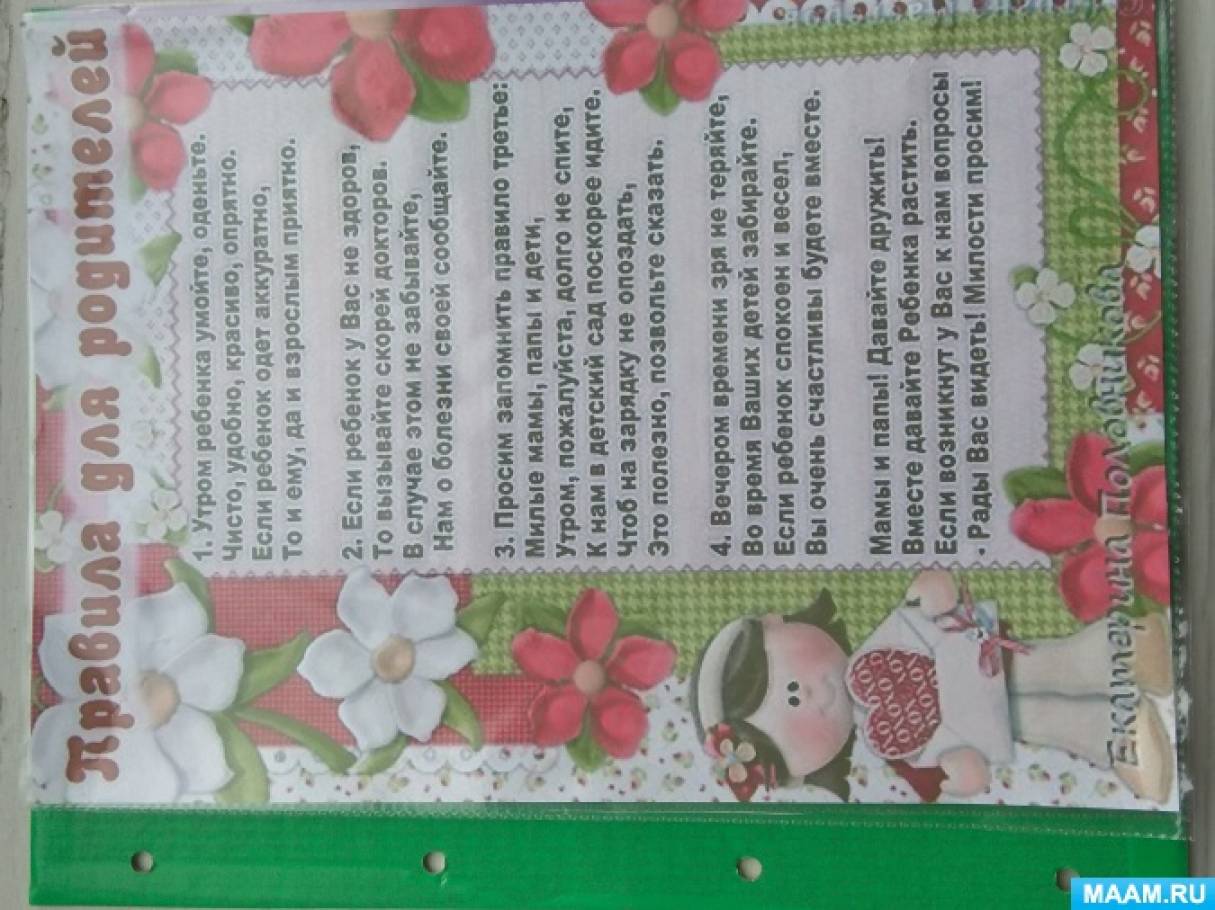 Правила для родителей
1. Утром ребенка умойте, оденьте.
Чисто, удобно, красиво, опрятно.
Если ребенок одет аккуратно,
То и ему, да и взрослым приятно.
2. Если ребенок у Вас не здоров,
То вызывайте скорей докторов.
В случае этом не забывайте,
Нам о болезни своей сообщайте.
3. Просим запомнить правило третье:
Милые мамы, папы и дети,
Утром, пожалуйста, долго не спите,
К нам в детский сад поскорее идите.
Чтоб на зарядку не опоздать,
Это полезно, позвольте сказать.
4. Вечером времени зря не теряйте,
Во время Ваших детей забирайте.
Если ребенок спокоен и весел,
Вы очень счастливы будете вместе.
Мамы и папы! Давайте дружить!
Вместе давайте Ребенка растить.
Если возникнут у Вас к нам вопросы
- Рады Вас видеть! Милости просим!
Екатерина Половчикова
MAAM.RU